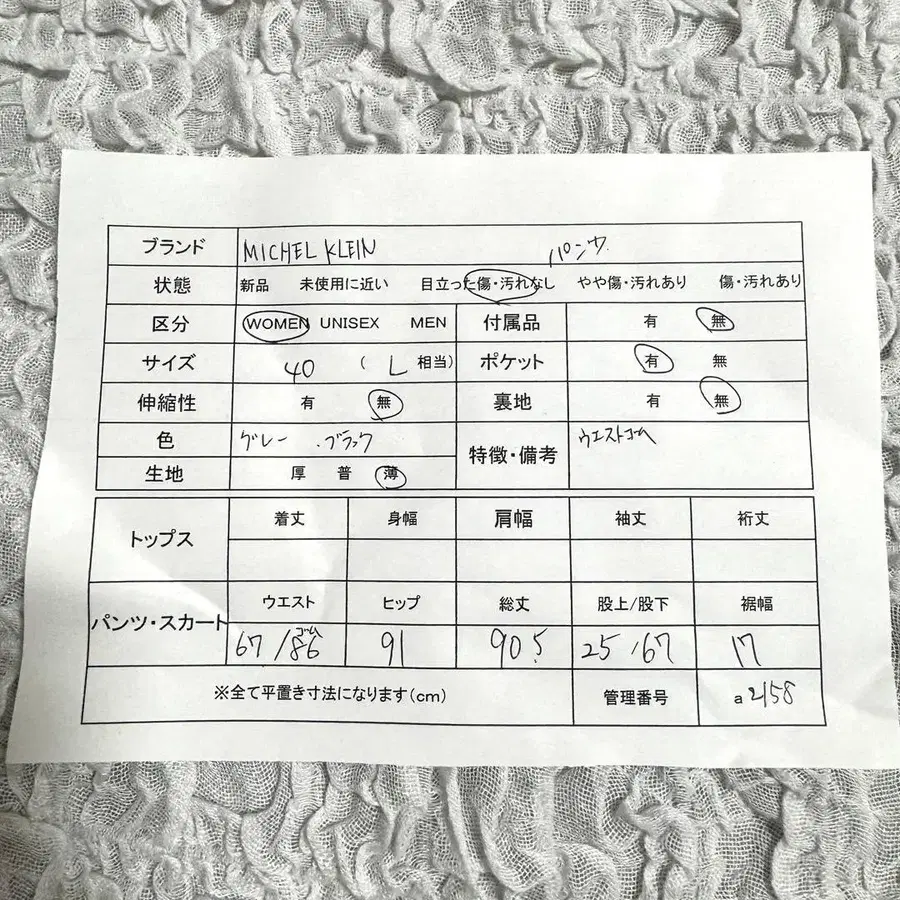 ブランド MICHEL KLEIN パンツ
状態 新品 未使用に近い 目立った傷・汚れなし やや傷・汚れあり 傷・汚れあり
区分 WOMEN UNISEX MEN 付属品 有 無
サイズ 40 ( L 相当) ポケット 有 無
伸縮性 有 無 裏地 有 無
色 グレー ・ブラック 特徴・備考 ウエストゴム
生地 厚 普 薄
トップス 着丈 身幅 肩幅 袖丈 裄丈
パンツ・スカート ウエスト ヒップ 総丈 股上/股下 裾幅
67 /ゴム86 91 90.5 25 /67 17
※全て平置き寸法になります(cm) 管理番号 a 2158